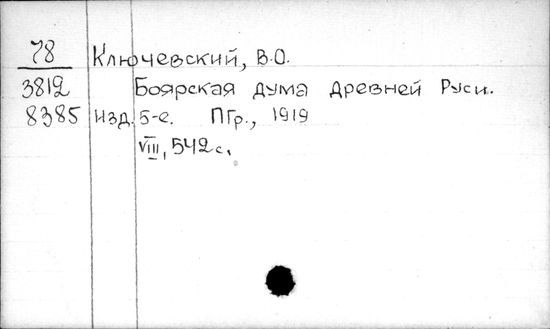 78 Ключевский, В.О.
3812 Боярская дума древней Руси.
8385 Изд. 5-е. ПГр., 1919
VIII, 542 с.